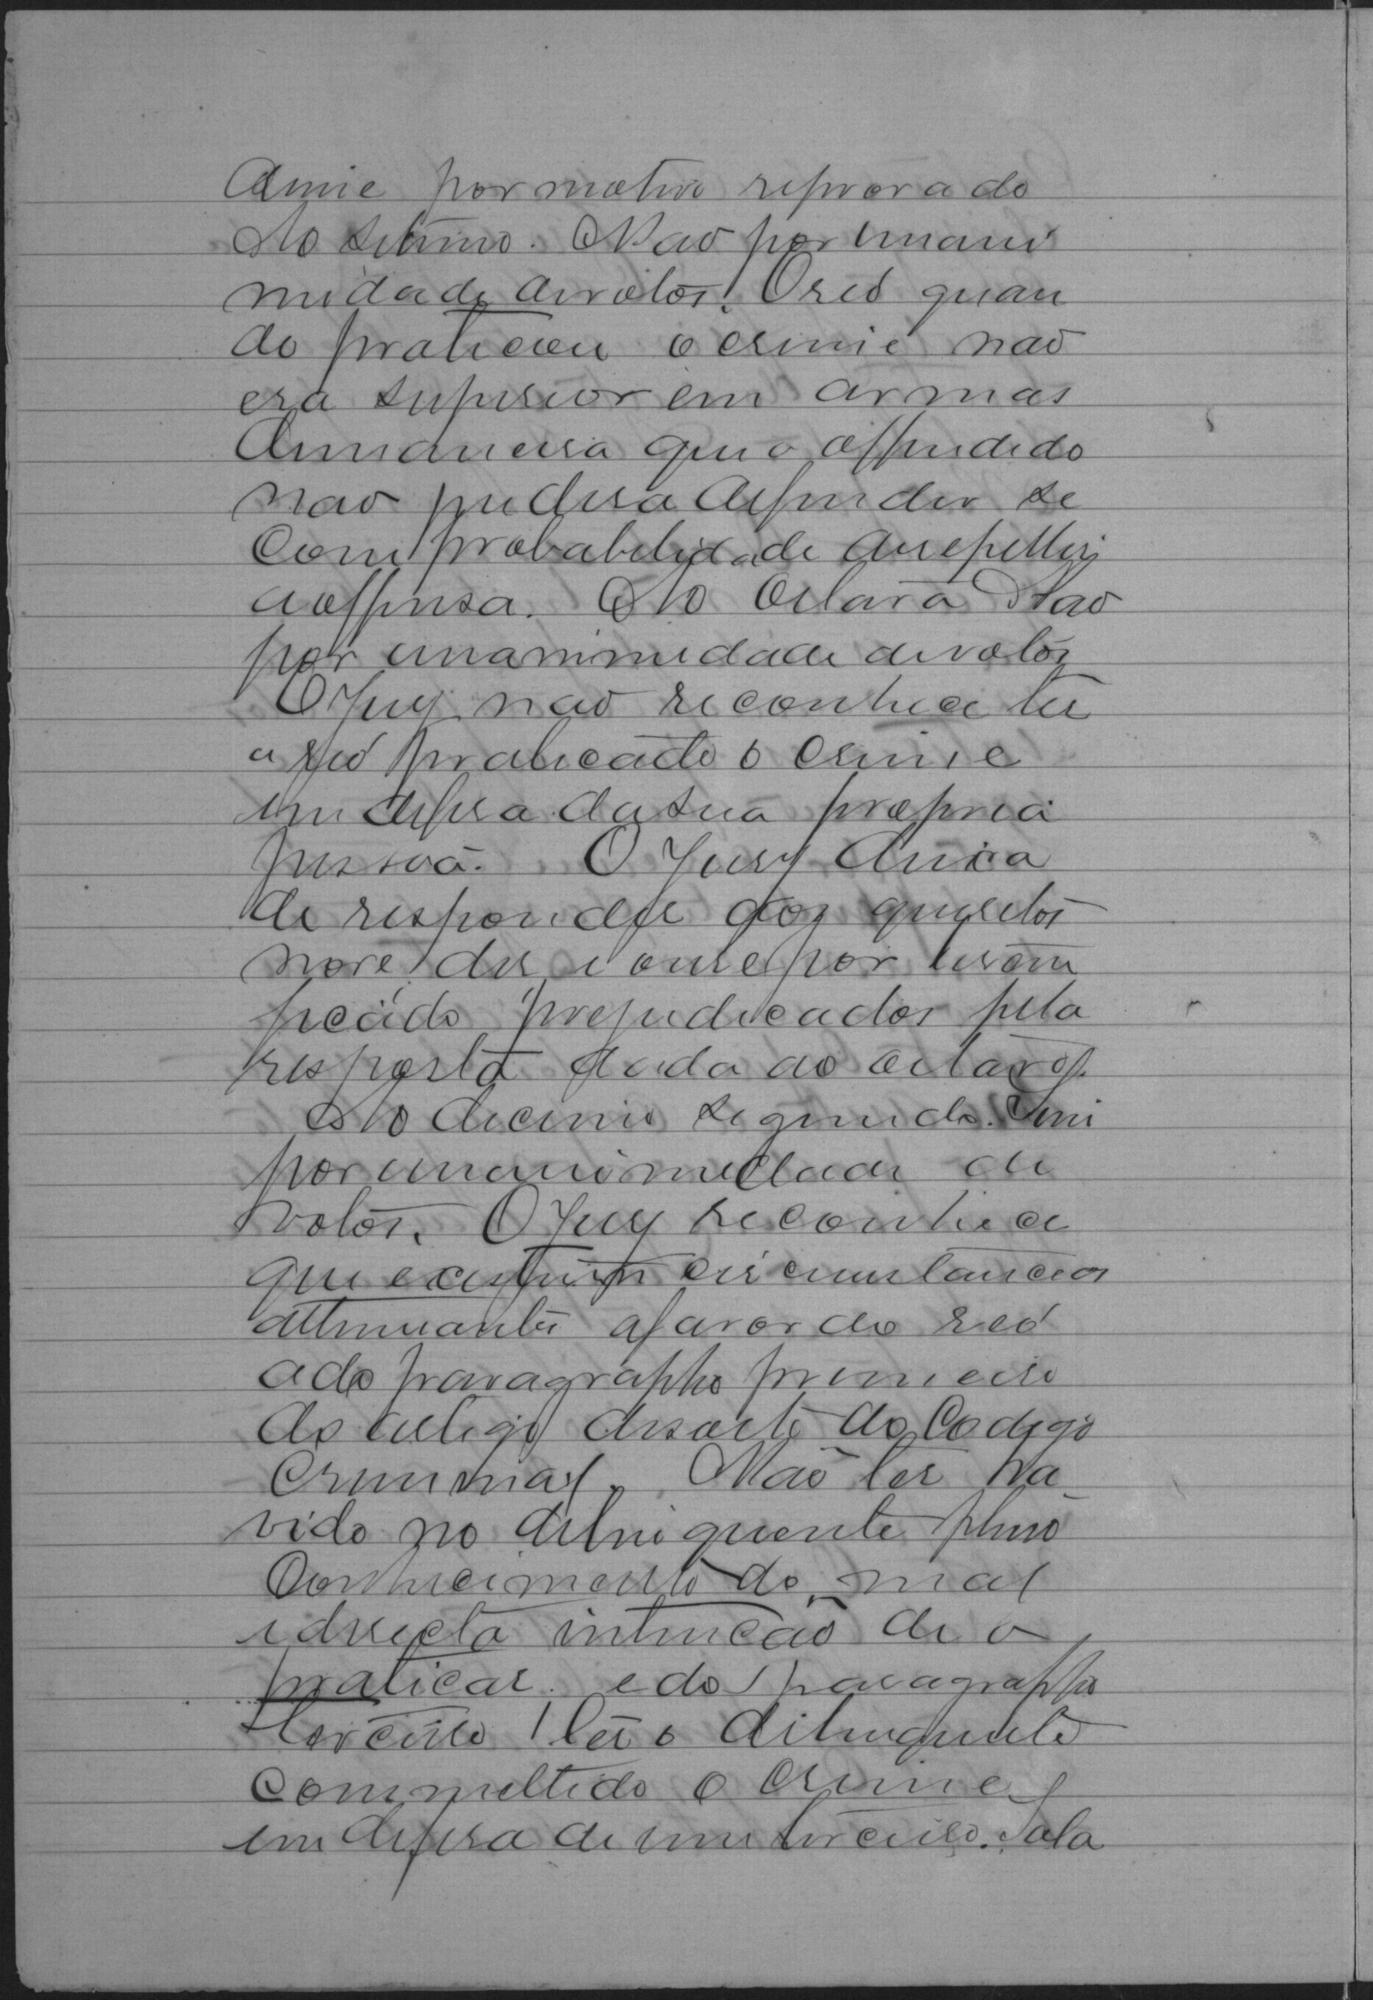 crime por motivo reprovado
Ao setimo. Não por unani
midade de votos. O reó quan
do praticou o crime não
era superior em armas
de maneira que o offendido
não pudera defender se
com probabelidade de repellir
a offensa. Ao oitavo Não
por unanimidade de votos
O Jury não reconhece ter
o reó praticado o crime
em defesa da sua propria
pessoa. O Jury deixa
de responder aos quesitos
nove, des, e onse por terem
ficado prejudicados pela
resposta dada ao oitavo.
Ao decimo segundo. Sim
por unanimidade de
votos. O Jury reconhece
que existem circumstancias
attenuantes a favor do reó
a do paragrapho primeiro
do artigo desoito do Codigo
Criminal. Não ter ha
vido no delinquente pleno
conhecimento do mal
e directa intenção de o
praticar. e do paragrapho
terceiro ter o delinquente
commettido o crime
em defesa de um terceiro. Sala